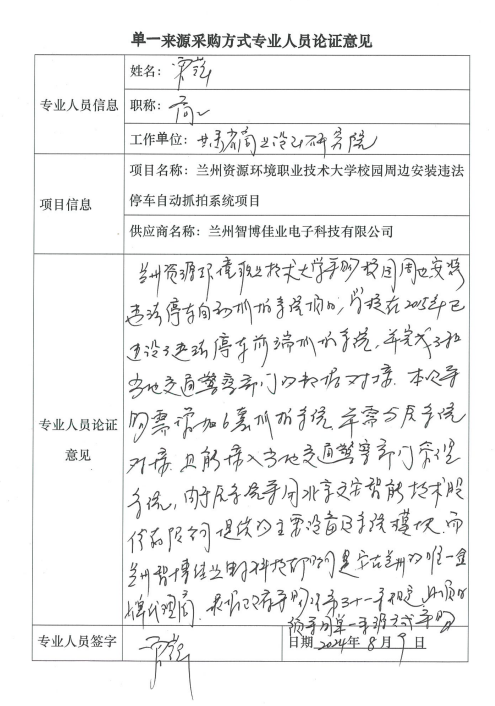 单一来源采购方式专业人员论证意见
专业人员信息
姓名：
职称：高工
工作单位：甘肃省商业设计研究院
项目信息
项目名称：兰州资源环境职业技术大学校园周边安装违法
停车自动抓拍系统项目
供应商名称：兰州智博佳业电子科技有限公司
专业人员论证
意见
兰州资源环境职业技术大学采购校园周边安装
违法停车自动抓拍系统项目，学校在2015年已
建设了违法停车前端抓拍系统，并完成了和
当地交通警察部门的数据对接．本次采
购需增加6套抓拍系统，牵需与原系统
对接，且能接入当地交通警察部门管理
系统，由于原系统采用北京文安智能技术股
份有限公司提供的主要设备及系统模块，而
兰州智博佳业电子科技有限公司是文安在兰州的唯一金
牌代理商．根据政府采购法第三十一条规定，此项目
须采用单一来源方式采购
专业人员签字
日期 2024年 8月 9日